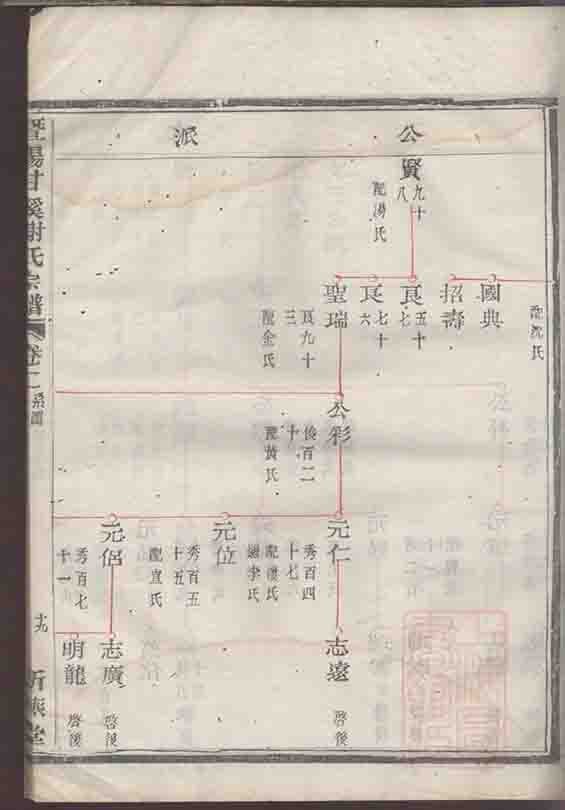 公派
配沈氏
國典
招壽
賢
九十八
配湯氏
良
五十七
良
七十六
聖瑞
良九十三
配金氏
公彩
俊百二十
配黃氏
元仁
秀百四十七
繼李氏
元位
秀百五十五
配宣氏
元侶
秀百七十一
志遠
啓後
志廣
啓後
明龍
啓後
暨陽甘溪謝氏宗譜
卷二
系圖
十九